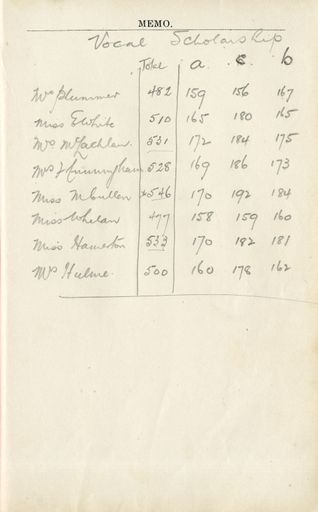 MEMO.
Vocal Scholarship
Total a. c. b
Mrs Plummer 482 159 156 167
Miss E White 510 165 180 165
Mrs McLachlan 531 172 184 175
Mrs J Cunningham 528 169 186 173
Miss McCullen *546 170 192 184
Miss Whelan 477 158 159 160
Miss Hamerton 533 170 182 181
Mrs Hulme. 500 160 178 162